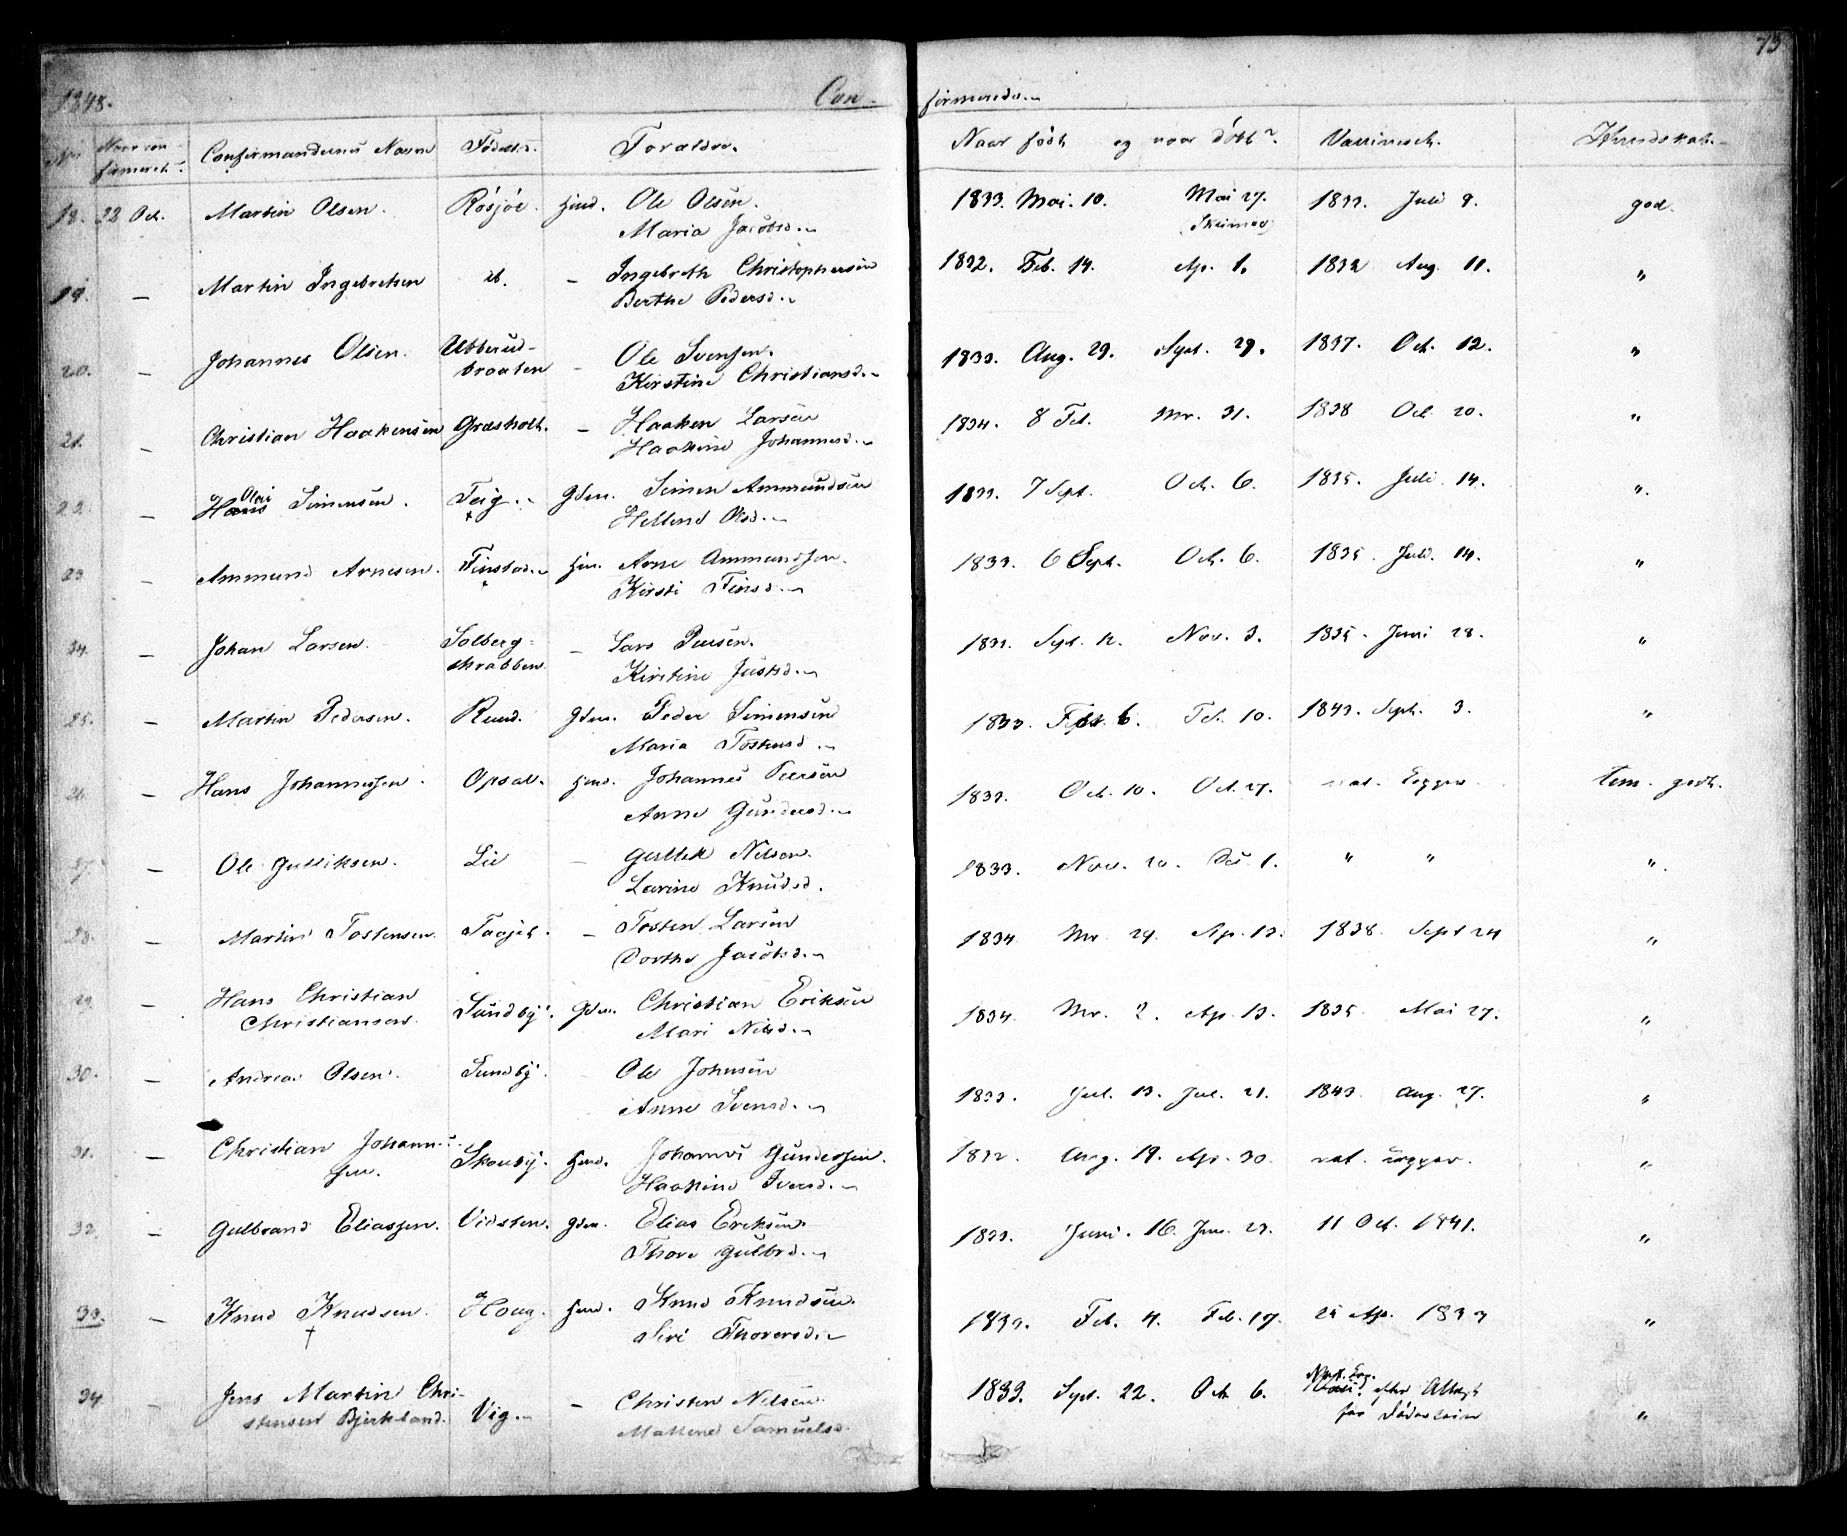 73
1848. Con- firmerede.
No. Naar con- firmeret. Confirmandernes Navn Fødested. Forældre. Naar født og naar døbt? Vaccineret. Kundskab.
18. 22 Oct. Martin Olsen. Rösjöe. Hjmd. Ole Olsen. 1833. Mai. 10. Mai 27. 1833. Juli 9. god.
Maria Jacobsd. (Skivnes)
19. — Martin Ingebretsen ib. — Ingebreth Christophersen 1832. Feb. 14. Ap. 1. 1832 Aug. 11. "
Berthe Pedersd.
20. — Johannes Olsen. Ubberud- Ole Svensen. 1833. Aug. 29. Sept. 29. 1837. Oct. 12. "
braaten — Kirstine Christiansd.
21. — Christian Haakensen Græsholt. — Haaken Larsen 1834. 8 Feb. Mr. 31. 1838 Oct. 20. "
Haakine Johannesd.
22. — Hans Olai Simensen. Teig. Gdm. Simen Ammundsen 1833. 7 Sept. Oct. 6. 1835. Juli 14. "
Hellene Olsd.
23 — Ammund Arnesen. Finstad. Hjm. Arne Ammundsen. 1833. 6 Sept. Oct. 6. 1835. Juli. 14. "
Kirsti Finsd.
24. — Johan Larsen. Solberg- Lars Peersen. 1833. Sept. 12. Nov. 3. 1835. Juni 28. "
skrabben — Kirstine Justsd.
25. — Martin Pedersen. Ruud. Gdm. Peder Simensen 1833. Feb. 6. Feb. 10. 1843. Sept. 3. "
Maria Tostensd.
26. — Hans Johannessen. Opsal. Hjmd. Johannes Peersen 1833. Oct. 10. Oct. 27. nat. Kopper. tem. godt.
Anne Gundersd.
27. — Ole Gulliksen. Lie — Gullek Nilsen. 1833. Nov. 20. Dec. 1. " " "
Larine Knudsd.
28. — Martin Tostensen. Taajet. — Tosten Larsen 1834 Mr. 29. Ap. 13. 1838. Sept 24 "
Dorthe Jacobsd.
29. — Hans Christian Sundby. Gdm. Christian Eriksen 1834. Mr. 2. Ap. 13. 1835. Mai 27. "
Christiansen. Mari Nilsd.
30. — Andreas Olsen. Sundby. Ole Johnsen 1833. Jul. 13. Jul. 21. 1843. Aug. 27. "
Anne Svensd.
31. — Christian Johann- Skouby. Hjmd. Johannes Gundersen. 1832. Aug. 19. Ap. 30. nat. kopper. "
sen. Haakine Iversd.
32. — Gulbrand Eliassen. Vidsten. Gdm. Elias Eriksen 1833. Juni. 16. Jun. 23. 11 Oct. 1841. "
Thore Gulbrd.
33. — Knud Knudsen. Houg. Hjmd. Knud Knudsen. 1833. Feb. 4. Feb. 17. 25 Ap. 1837 "
† Siri Thorersd.
34 — Jens Martin Chri- Vig. — Christen Nilsen. 1833. Sept. 22. Oct. 6. efter Attest
stensen Bjerkland. Mattene Samuelsd. fra "